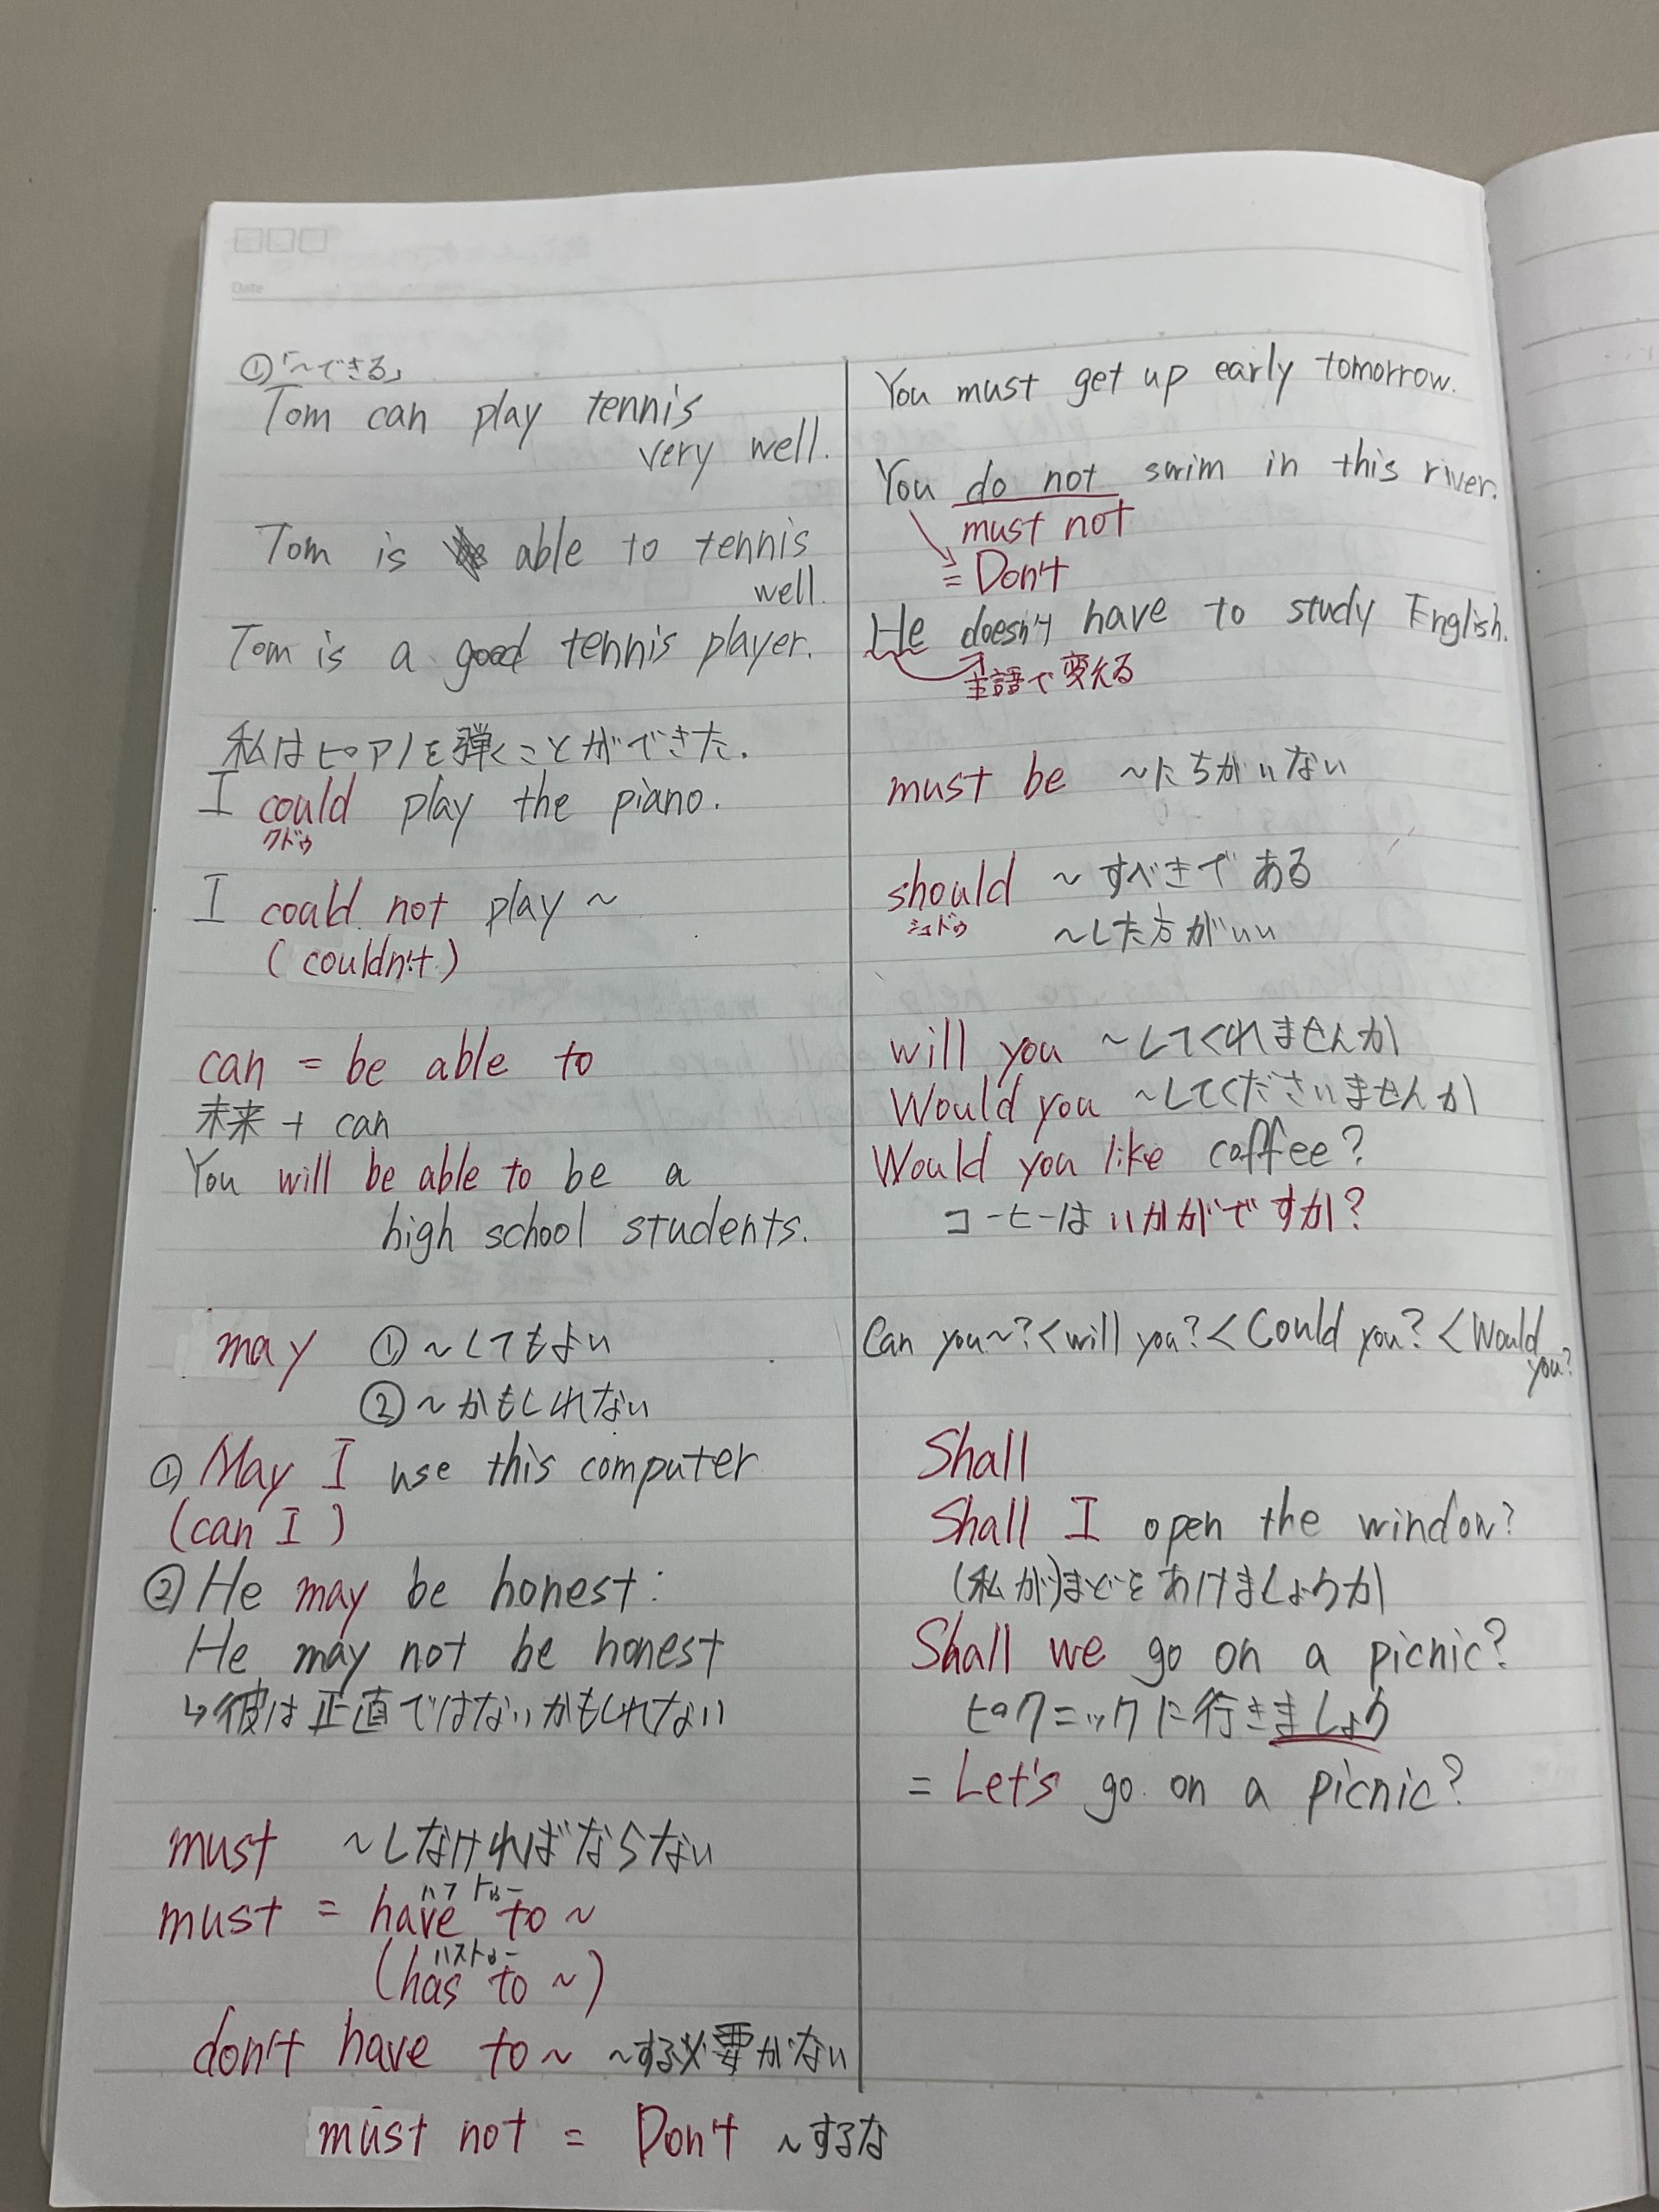 Date
①「～できる」
Tom can play tennis
very well.
Tom is able to tennis
well.
Tom is a good tennis player.
私はピアノを弾くことができた.
I could play the piano.
クドゥ
I could not play ~
(couldn't)
can = be able to
未来 + can
You will be able to be a
high school students.
may ①～してもよい
②～かもしれない
① May I use this computer
(can I)
② He may be honest.
He may not be honest
↳彼は正直ではないかもしれない
must ～しなければならない
ハフ トゥー
must = have to ~
ハストゥー
(has to ~)
don't have to ~ ～する必要がない
must not = Don't ～するな
You must get up early tomorrow.
You do not swim in this river.
must not
= Don't
He doesn't have to study English.
主語で変える
must be ～にちがいない
should ～すべきである
シュドゥ ～した方がいい
will you ～してくれませんか
Would you ～してくださいませんか
Would you like coffee?
コーヒーはいかがですか?
Can you~?<will you?<Could you?<Would
you?
Shall
Shall I open the window?
(私が)まどをあけましょうか
Shall we go on a picnic?
ピクニックに行きましょう
= Let's go on a picnic?